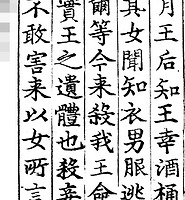 月王后知王幸酒桶
其女聞知衣男服逃
爾等今来殺我王命
實王之遺體也殺妾
不敢害来以女所言